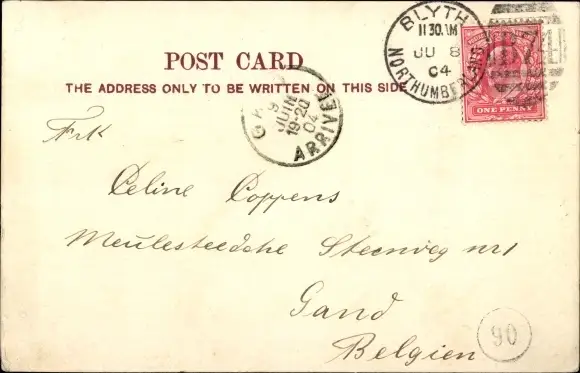 BLYTH
11 30.AM
JU 8
04
NORTHUMBERLAND
ONE PENNY
POST CARD
THE ADDRESS ONLY TO BE WRITTEN ON THIS SIDE
9
JUIN
19-20
04
ARRIVEE
Frk
Celine Coppens
Meulesteedshe Steenveg nr1
Gand
Belgien
90